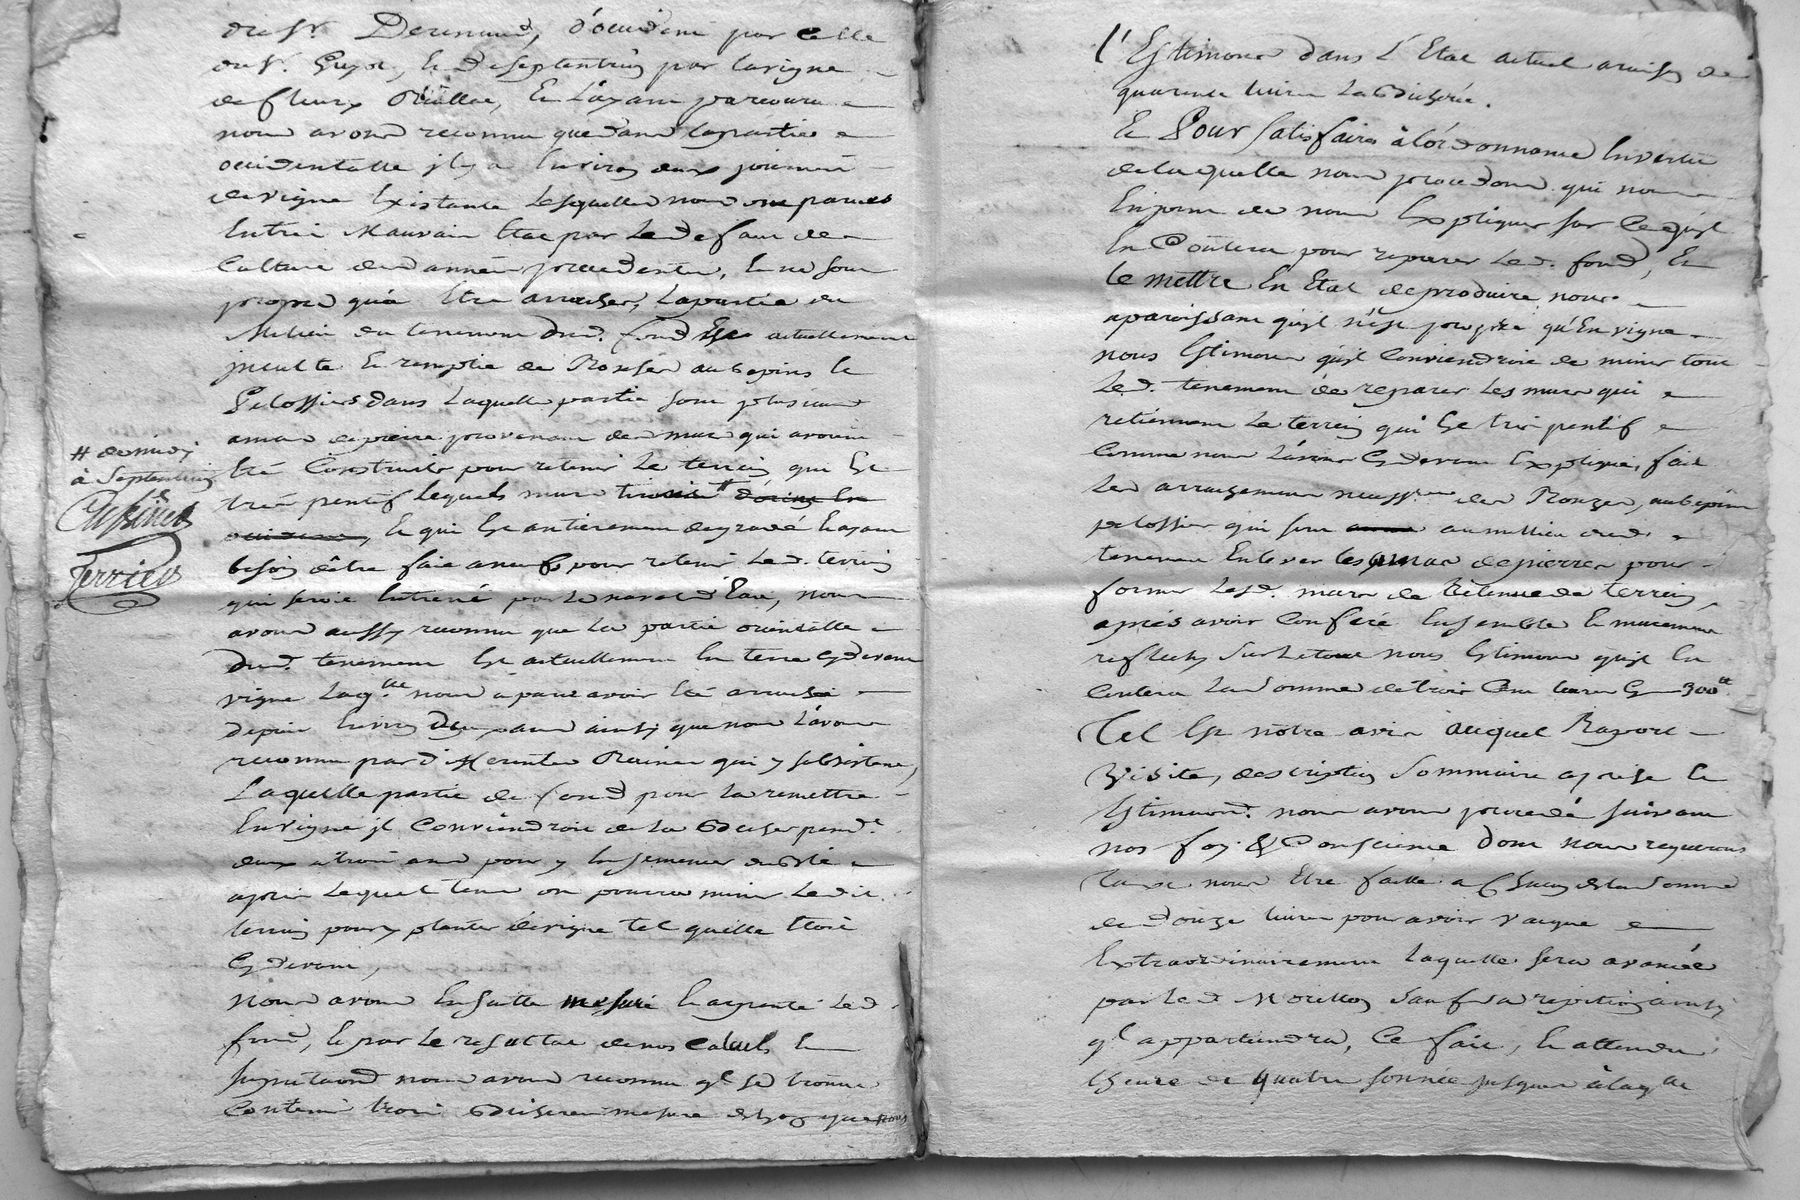 du Sr. Derenaud, d'occident par celle
du Sr. Guyot, et de septentrion par la vigne
de fleury Viallet, Et L'ayant parcouru
nous avons reconnu que dans la partie
occidentalle jl y a Environ deux journaux
de vigne Existante Lesquelles nous ont parues
En trés Mauvais Etat par Le defaut de
Culture des années precedentes, Et ne sont
propres qu'a Etre arrachés, La partie du
Milieu du tenement dud. fond Est actuellement
jnculte Et remplie de Ronses aubepins Et
Pelossiers dans Laquelle partie sont plusieurs
amas de pierre provenant des murs qui avoient
Eté Construits pour retenir Le terrein qui Est
trés pentif Lesquels murs
Et qui Est antierement degradé Et ayant
besoin d'être fait a neuf pour retenir Led. terrein
qui seroit Entrené par Le ravat d'Eau, nous
avons aussy reconnu que La partie orientalle
dud. tenement Est actuellement En terre Cy devant
vigne Laq.lle nous a paru avoir Eté arrachée
depuis Environ deux ans ainsy que nous L'avons
reconnu par d'Existantes Racines qui y subsistent,
Laquelle partie de fond pour La remettre
En vigne jl Conviendroit de La Laisser pend.t
deux a trois ans pour y Ensemencer du Blé
aprés Lequel tems on pourra miner Ledit
terrein pour y planter de vigne tel qu'elle Etoit
Cy devant,
Nous avons Ensuitte mesuré Et arpenté Led.
fond, Et par Le resultat de nos Calculs Et
supputations nous avons reconnu q.l se trouve
Contenir trois Bicherées mesure de Lyon que nous
# de midy
à Septentrion
Terrier
L'Estimons dans L'Etat actuel a raison de
quarente Livres La Bicherée.
Et Pour satisfaire à L'ordonnance En vertu
de Laquelle nous procedons qui nous
Enjoint de nous Expliquer sur Ce qu'jl
En Coûtera pour reparer Led. fond, Et
le mettre En Etat de produire, nous
aparoissant qu'jl n'est propre qu'En vigne
nous Estimons qu'jl Conviendroit de miner tout
Led. tenement de reparer Les murs qui
retiennent Le terrein qui Est trés pentif
Comme nous L'avons Cy devant Expliqué, fait
Les arrachemens necess.res des Ronzes, aubepins
pelossiers qui sont au millieu dud.
tenement Enlever les amas de pierres pour
former Lesd. murs de Retenue de terrein,
aprés avoir Conferé Ensemble Et murement
reflechy sur Le tout nous Estimons qu'jl En
Coutera La Somme de trois Cent Livres Cy 300.tt
Tel Est nôtre avis auquel Raport
Visite, description Sommaire aprise Et
Estimaon. nous avons procedé suivant
nos foy & Conscience dont nous requerons
taxe nous Etre faitte a Chacun de La Somme
de douze Livres pour avoir vaqué
Extraordinairement Laquelle sera avancée
par Led. Morellon sauf sa repetition ainsy
q.l appartiendra, Ce fait, Et attendu
L'heure de quatre sonnée jusques à Laq.lle